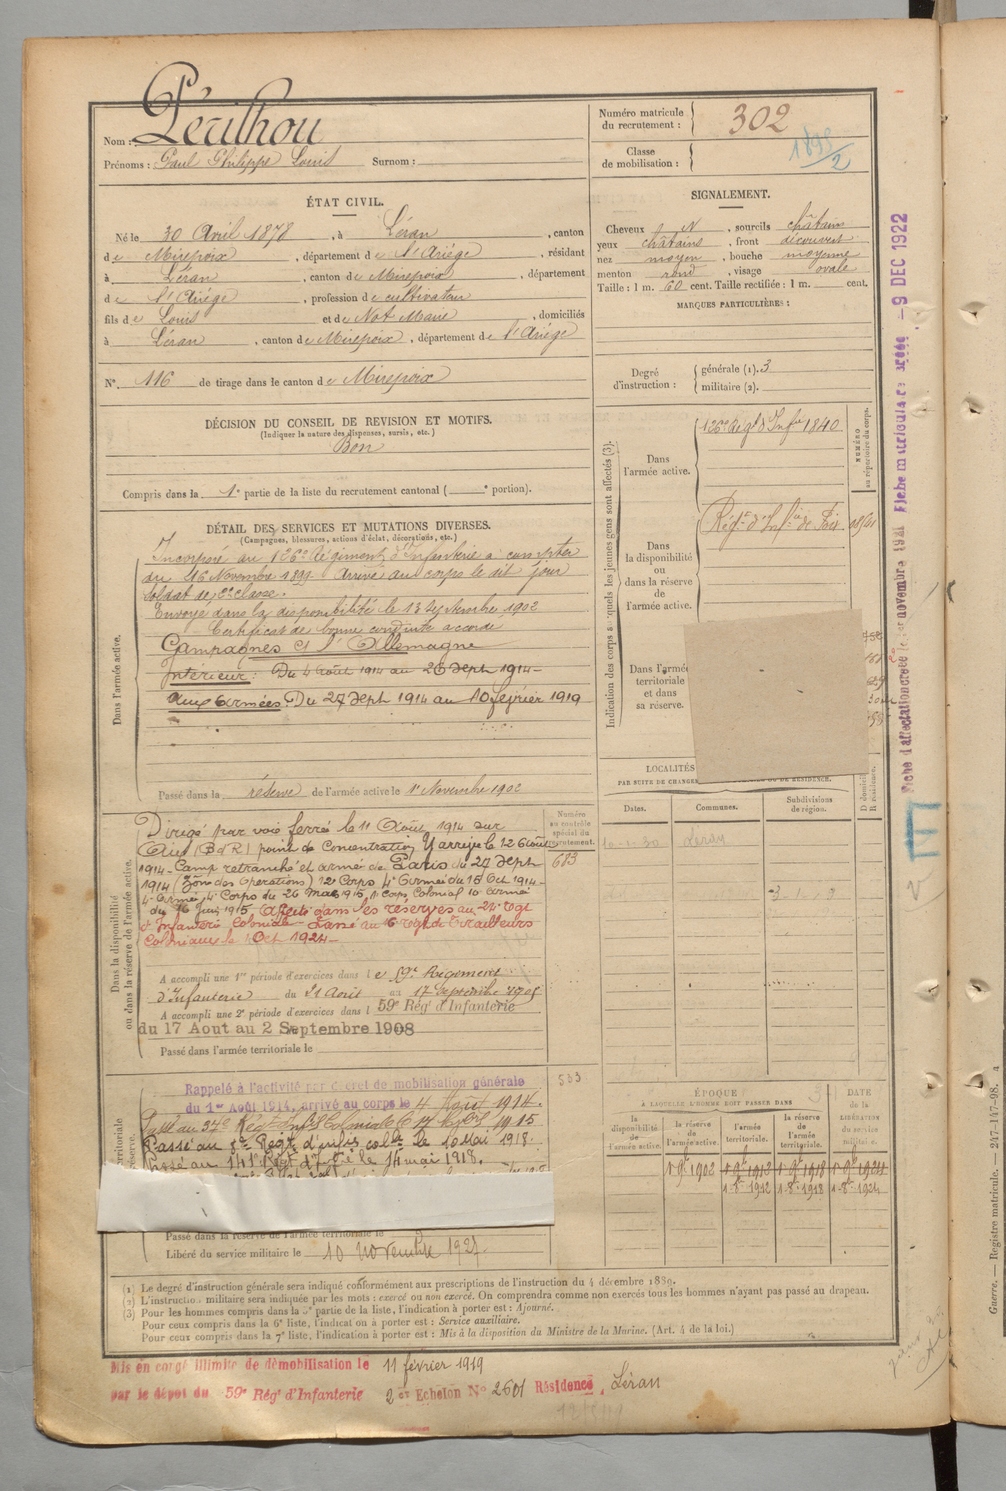 Nom : Périlhou
Prénoms : Paul Philippe Louis Surnom :
Numéro matricule du recrutement : 302
Classe de mobilisation :
ÉTAT CIVIL.
Né le 30 Avril 1878, à Léran, canton
de Mirepoix, département de l'Ariége, résidant
à Léran, canton de Mirepoix, département
de l'Ariége, profession de cultivateur
fils de Louis et de Not Marie, domiciliés
à Léran, canton de Mirepoix, département de l'Ariége
N° 116 de tirage dans le canton de Mirepoix
SIGNALEMENT.
Cheveux N, sourcils châtains
yeux châtains, front découvert
nez moyen, bouche moyenne
menton rond, visage ovale
Taille : 1 m. 60 cent. Taille rectifiée : 1 m. cent.
MARQUES PARTICULIÈRES :
Degré d'instruction : générale (1). 3
militaire (2).
DÉCISION DU CONSEIL DE REVISION ET MOTIFS.
(Indiquer la nature des dispenses, sursis, etc.)
Bon
Compris dans la 1e partie de la liste du recrutement cantonal ( e portion).
DÉTAIL DES SERVICES ET MUTATIONS DIVERSES.
(Campagnes, blessures, actions d'éclat, décorations, etc.)
Dans l'armée active.
Incorporé au 126e Régiment d'Infanterie à compter
du 16 Novembre 1899. Arrivé au corps le dit jour
soldat de 2e classe.
Envoyé dans la disponibilité le 13 Septembre 1902
Certificat de bonne conduite accordé
Campagnes et l'Allemagne
Intérieur : Du 4 Août 1914 au 26 Sept 1914-
Aux Armées. Du 27 Sept 1914 au 10 février 1919
Passé dans la réserve de l'armée active le 1er Novembre 1902
Dans la disponibilité ou dans la réserve de l'armée active.
Dirigé par voie ferrée le 11 Août 1914 sur
(B d R) point de Concentration Y arrivé le 12 Août
1914- Camp retranché et armée de Paris du 27 Sept
1914 (Zône des Opérations) 12e Corps 4e Armée du 15 Oct 1914-
4e Armée, 4e Corps du 26 Mai 1915, 1er corps Colonial 10e armée
du 16 Juin 1915, Affecté dans les réserves au 24e Rgt
d'Infanterie Coloniale- Passé au 16e Rgt de Tirailleurs
Coloniaux le 1 Oct 1924-
A accompli une 1re période d'exercices dans le 59e Régiment
d'Infanterie du 21 Août au 17 Septembre 1905
A accompli une 2e période d'exercices dans l 59e Rég' d'Infanterie
du 17 Aout au 2 Septembre 1908
Passé dans l'armée territoriale le
Numéro au contrôle spécial du recrutement.
683
Rappelé à l'activité par décret de mobilisation générale
du 1er Août 1914, arrivé au corps le 4 Août 1914.
Passé au 5e Régt d'infie colle le 10 Mai 1918.
Passé au 141e Régt d'Infie le 14 mai 1918.
Passé dans la réserve de l'armée territoriale le
Libéré du service militaire le 10 novembre 1927.
Indication des corps auxquels les jeunes gens sont affectés (3).
Dans l'armée active.
126me Régt d'Infie 1840
Dans la disponibilité ou dans la réserve de l'armée active.
Régt d'Infie de Foix
Dans l'armée territoriale et dans sa réserve.
NUMÉRO au répertoire du corps.
LOCALITÉS
Dates. Communes. Subdivisions de région.
Léran
ÉPOQUE
A LAQUELLE L'HOMME DOIT PASSER DANS
la disponibilité de l'armée active. la réserve de l'armée active. l'armée territoriale. la réserve de l'armée territoriale. DATE de la LIBÉRATION DU SERVICE MILITAIRE.
1 9bre 1902 1 9bre 1912 1 9bre 1918 1 9bre 1924
1-8bre 1912 1-8bre 1918 1-8bre 1924
(1) Le degré d'instruction générale sera indiqué conformément aux prescriptions de l'instruction du 4 décembre 1889.
(2) L'instruction militaire sera indiquée par les mots : exercé ou non exercé. On comprendra comme non exercés tous les hommes n'ayant pas passé au drapeau.
(3) Pour les hommes compris dans la 5e partie de la liste, l'indication à porter est : Ajourné.
Pour ceux compris dans la 6e liste, l'indication à porter est : Service auxiliaire.
Pour ceux compris dans la 7e liste, l'indication à porter est : Mis à la disposition du Ministre de la Marine. (Art. 4 de la loi.)
Mis en congé illimité de démobilisation le 11 février 1919
par le dépôt du 59e Rég' d'Infanterie 2e Echelon N° 2601 Résidence, Léran
9 DEC 1922
Guerre. — Registre matricule. — 247-147-98.